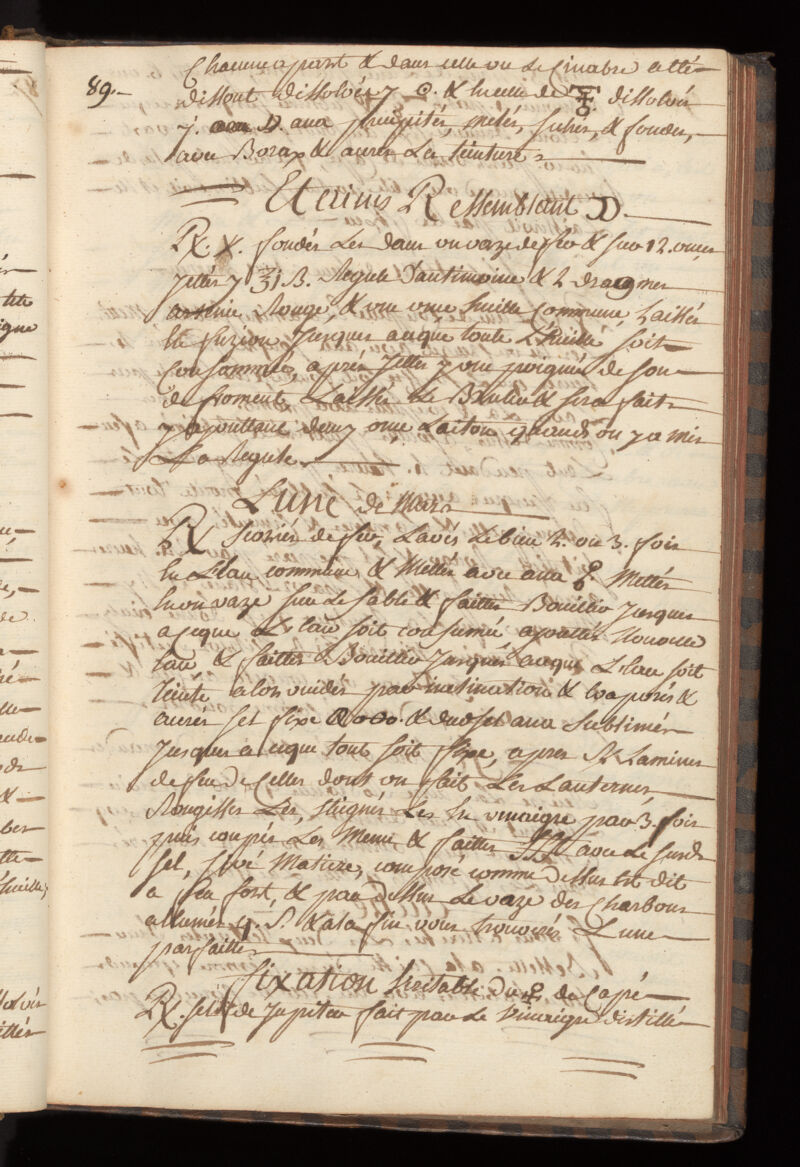 Chacune apart & dans celle ou le Cinabre a eté
89.— dissout dissolvés y C. & en celle de dissolvés
y D. aux precipités, melés, sechés, & fondés,
avec Borax & aurés La teinture
Etaims Ressemblant D.
Rx. X. fondés Les dans un vaze de fer & sur 12. onces
jettés y ʒ1 B. Regule d'antimoine & 2 dragmes
arsenic Rouge, & une once huille commune, Laissés
en fuzion, jusques aceque toute L'huille soit
Consommée, aprés jettés y une poignée de son
de froment, Laissés Le Brulér & sera fait
y ajouttant deux once Laiton quand on y a mis
La Regule.
Lune de Mars
Rx Scories de fer, Lavés Le bien 2. ou 3. fois
en L'eau commune & Mettés avec aux Mettés
en un vaze sur Le sable & faittes Bouillir jusques
aceque L'eau soit consumée ajoutés nouvelle
eau & faittes Bouillir jusques aceque L'eau soit
teinte alors vuidés par inclination & evaporés &
aurés sel fixe & dudt sel aux Sublimés
jusques a ceque tout soit fixe, apres Rx Lamines
de fer de Celles dont on fait Les Lanternes
Rougisses Les, éteignés Les en vinaigre par 3. fois
puis coupés Les Menu & faittes SSS avec Le susdt
sel, fixé Matiere, composé comme dessus est dit
a feu fort, & par dessus Le vaze des Charbons
allumés & a la fin vous trouverés Lune
parfaitte
Fixation veritable du de Capé
Rx. sel de Jupiter fait par Le Vinaigre distillé